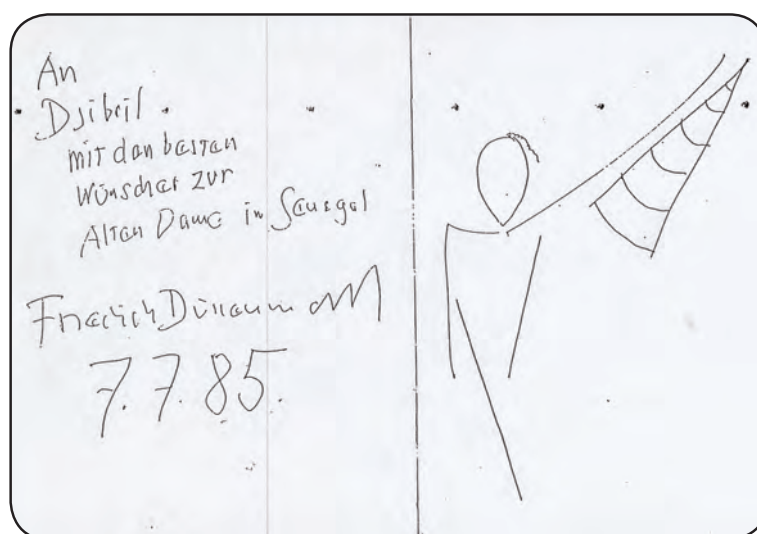 An
Dsibril
mit den besten
Wünschen zur
Alten Dame in Senegal
Friedrich Dürrenmatt
7.7.85.